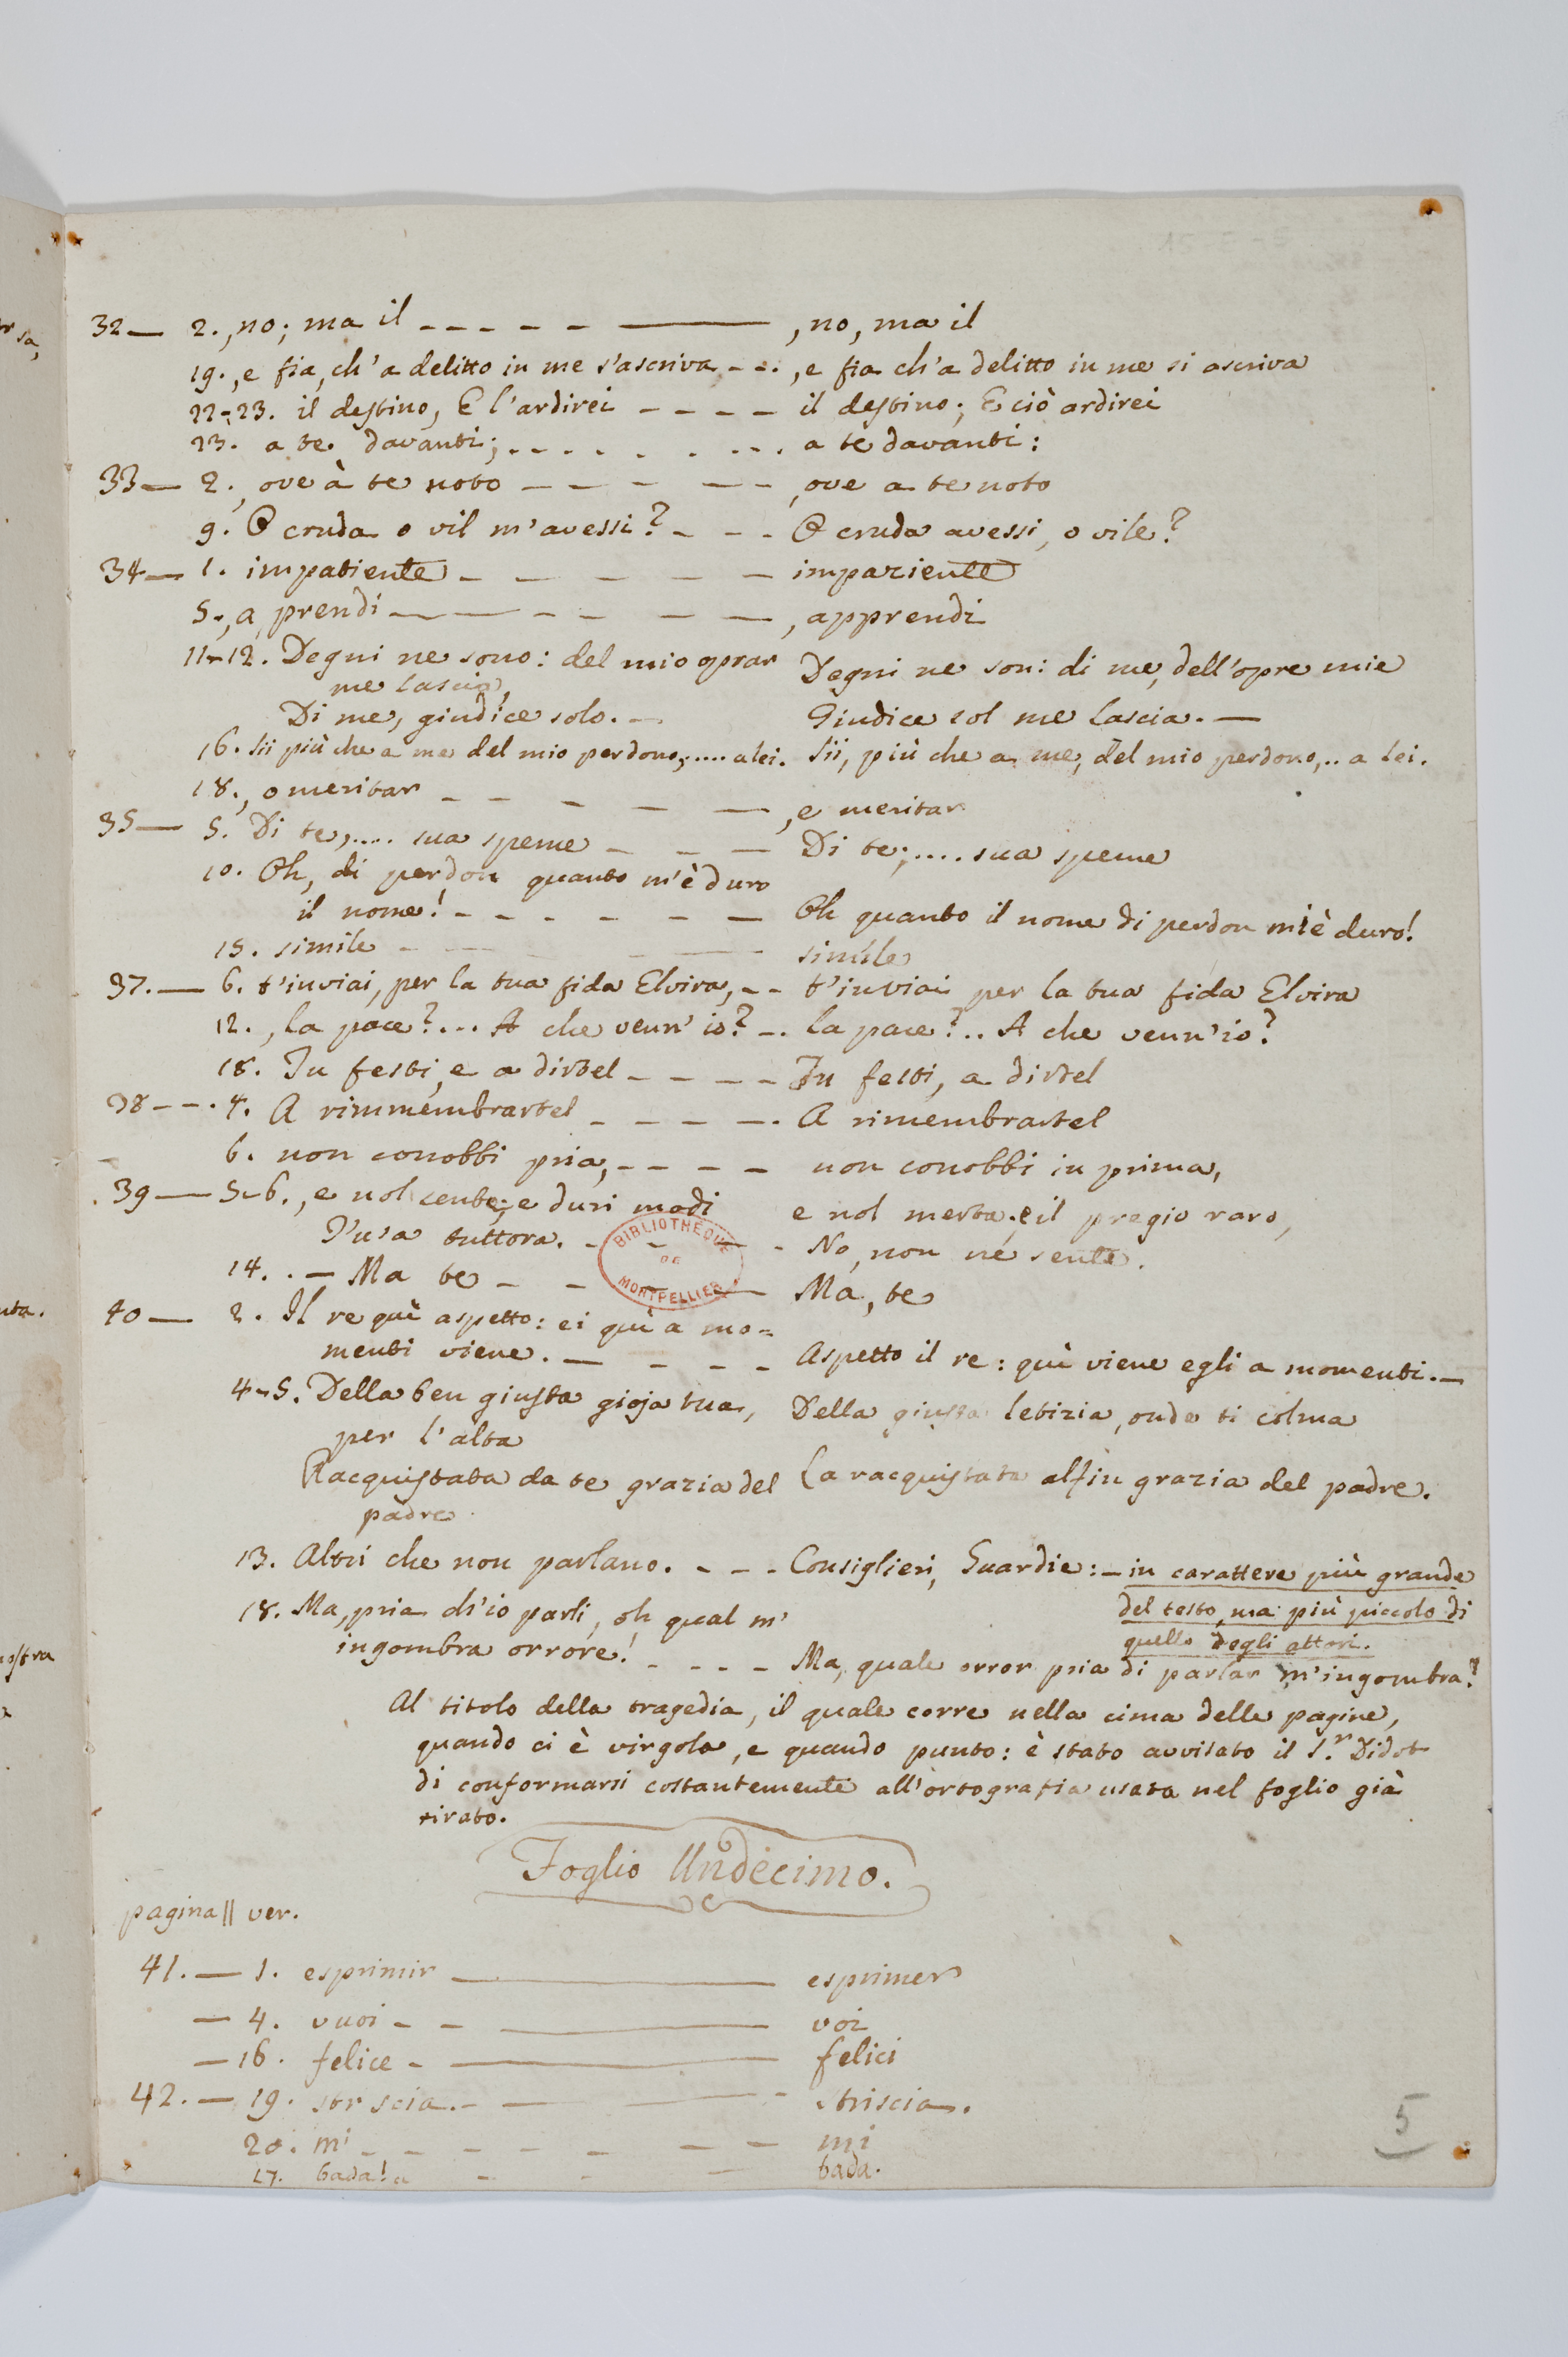 32— 2., no; ma il - - - - - — , no, ma il
19., e fia, ch'a delitto in me s'ascriva - - . , e fia ch'a delitto in me si ascriva
22-23. il destino, E l'ardirei - - - - il destino; E ciò ardirei
23. a te davanti; . - - . . . - - . a te davanti:
33— 2., ove à te noto - - - - - - , ove a te noto
9. O cruda o vil m'avessi? - - - O cruda avessi, o vile?
34— 1. impatiente - - - - - - impaziente
5., a prendi — — - - - — , apprendi
11-12. Degni ne sono: del mio oprar Degni ne son: di me, dell'opre mie
me lascia,
Di me, giudice solo. - Giudice sol me lascia. —
16. Sii più che a me del mio perdono; .... a lei. Sii, più che a me, del mio perdono, .. a lei.
18., o meritar - - - - — , e meritar
35— 5. Di te, .... sua speme - - — Di te; .... sua speme
10. Oh, di perdon quanto m'è duro
il nome! - - - - - — Oh quanto il nome di perdon m'è duro!
15. simile - - - — simile
37. — 6. t'inviai, per la tua fida Elvira, - - t'inviai per la tua fida Elvira
12., la pace? ... A che venn' io? - . la pace? .. A che venn'io?
18. Tu festi, e a dirtel - - - - Tu festi, a dirtel
38 - - . 4. A rimmembrartel - - - - . A rimembrartel
6. non conobbi pria, - - - - non conobbi in prima,
39— 5-6., e nol sente; e duri modi e nol merta; e il pregio raro,
V'usa tuttora. - - — - No, non ne sente.
14. . — Ma te - - — Ma, te
BIBLIOTHEQUE
DE
MONTPELLIER
40— 2. Il re quì aspetto: ei quì a mo=
menti viene. — - - - Aspetto il re: quì viene egli a momenti. —
4-5. Della ben giusta gioja tua, Della giusta letizia, onde ti colma
per l'alta
Racquistata da te grazia del La racquistata alfin grazia del padre.
padre
13. Altri che non parlano. - - - Consiglieri, Guardie: - in carattere più grande
del testo, ma più piccolo di
quello degli attori.
18. Ma, pria ch'io parli, oh qual m'
ingombra orrore! - - - - Ma, quale orror pria di parlar m'ingombra?
Al titolo della tragedia, il quale corre nella cima delle pagine,
quando ci è virgola, e quando punto: è stato avvisato il S.r Didot
di conformarsi costantemente all'ortografia usata nel foglio già
tirato.
Foglio Undecimo.
pagina || ver.
41. — 1. esprimir — esprimer
— 4. vuoi - - — voi
— 16. felice - — felici
42. — 19. str scia. - — - striscia.
20. m' - - - - - - — mi
27. bada! a - - — bada.
5